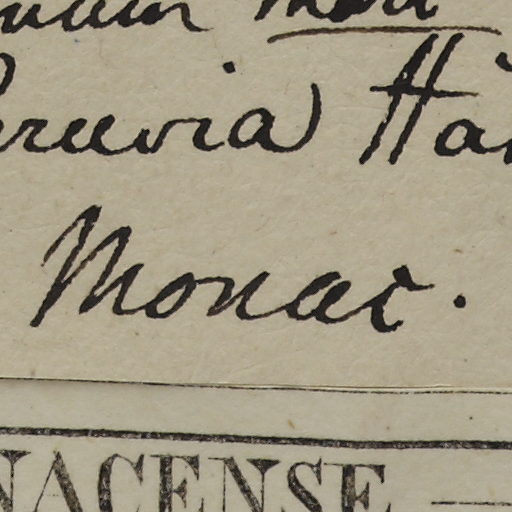 eruvia) Ha
Monac.
NACENSE